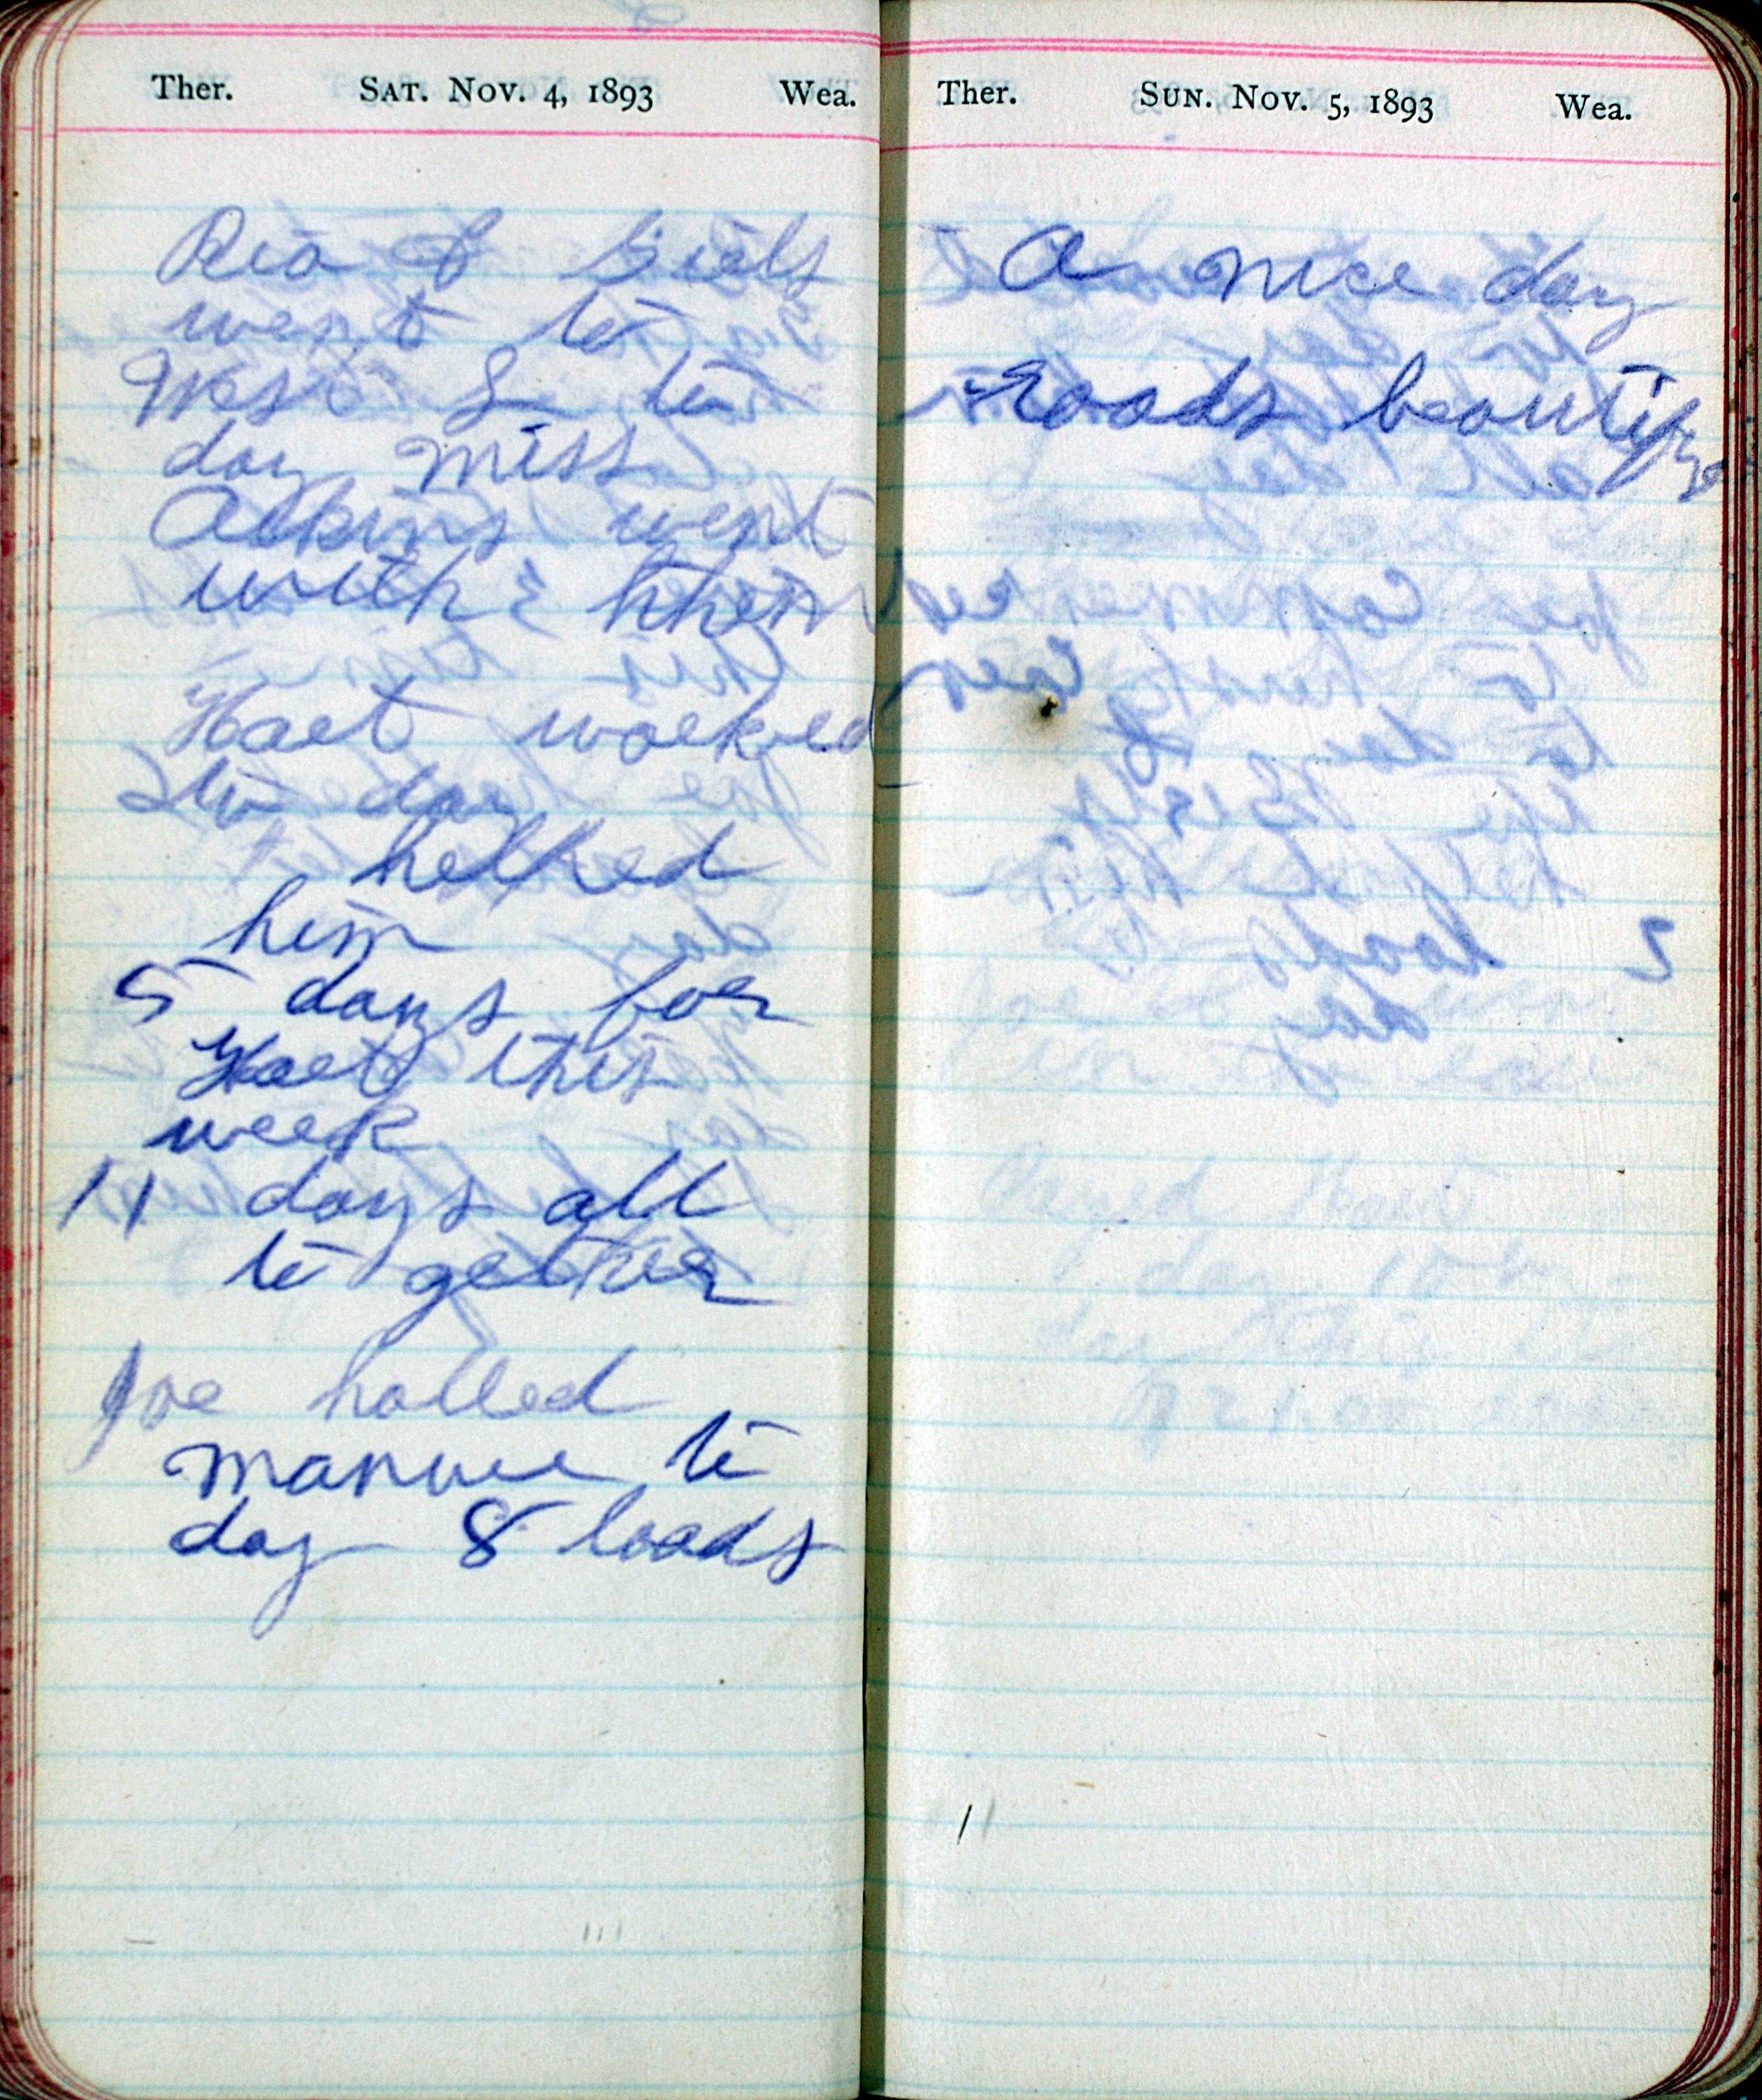 Ther. SAT. NOV. 4, 1893 Wea.
& Girls
went to
to
day Miss
Atkins went
with them
Hart worked
to day
helped
him
5 days for
Hart this
week
11 days all
to gether
Joe holled
manure to
day 8 loads
Ther. SUN. NOV. 5, 1893 Wea.
A nice day
Roads beautiful